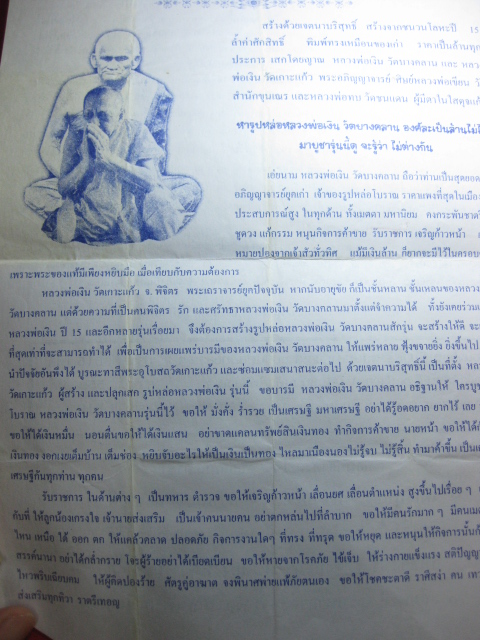 สร้างด้วยเจตนาบริสุทธิ์ สร้างจากชนวนโลหะปี 15
ล้ำค่าศักสิทธิ์ พิมพ์ทรงเหมือนของเก่า ราคาเป็นล้านทุก
ประการ เสกโดยญาณ หลวงพ่อเงิน วัดบางคลาน และ หลวง
พ่อเงิน วัดเกาะแก้ว พระอภิญญาจารย์ ศิษย์หลวงพ่อเขียน
สำนักขุนเณร และหลวงพ่อทบ วัดชนแดน ผู้มีตาในโสตุจแก้
หารูปหล่อหลวงพ่อเงิน วัดบางคลาน องค์ละเป็นล้านไม่ได้
มาบูชารุ่นนี้ดู จะรู้ว่า ไม่ต่างกัน
เอ่ยนาม หลวงพ่อเงิน วัดบางคลาน ถือว่าท่านเป็นสุดยอด
อภิญญาจารย์ยุคเก่า เจ้าของรูปหล่อโบราณ ราคาแพงที่สุดในเมือง
ประสบการณ์สูง ในทุกด้าน ทั้งเมตตา มหานิยม คงกระพันชาตรี
ขูดวง แก้กรรม หนุนกิจการค้าขาย รับราชการ เจริญก้าวหน้า
หมายปองจากเจ้าสัวทั่วทิศ แม้มีเงินล้าน ก็ยากจะมีไว้ในครอบ
เพราะพระของแท้มีเพียงหยิบมือ เมื่อเทียบกับความต้องการ
หลวงพ่อเงิน วัดเกาะแก้ว จ. พิจิตร พระเถราจารย์ยุคปัจจุบัน หากนับอายุขัย ก็เป็นชั้นหลาน ชั้นเหลนของหลวง
วัดบางคลาน แต่ด้วยความที่เป็นคนพิจิตร รัก และศรัทธาหลวงพ่อเงิน วัดบางคลานมาตั้งแต่จำความได้ ทั้งยังเคยร่วม
หลวงพ่อเงิน ปี 15 และอีกหลายรุ่นเรื่อยมา จึงต้องการสร้างรูปหล่อหลวงพ่อเงิน วัดบางคลานสักรุ่น จะสร้างให้ดี
ที่สุดเท่าที่จะสามารถทำได้ เพื่อเป็นการเผยแพร่บารมีของหลวงพ่อเงิน วัดบางคลาน ให้แพร่หลาย ฟุ้งขจายยิ่ง ยิ่งขึ้นไป
นำปัจจัยอันพึงได้ บูรณะทาสีพระอุโบสถวัดเกาะแก้ว และซ่อมแซมเสนาสนะต่อไป ด้วยเจตนาบริสุทธิ์นี้ เป็นที่ตั้ง
วัดเกาะแก้ว ผู้สร้าง และปลุกเสก รูปหล่อหลวงพ่อเงิน รุ่นนี้ ขอบารมี หลวงพ่อเงิน วัดบางคลาน อธิฐานให้ ใครบูชา
โบราณ หลวงพ่อเงิน วัดบางคลานรุ่นนี้ไว้ ขอให้ มั่งทั่ง ร่ำรวย เป็นเศรษฐี มหาเศรษฐี อย่าได้รู้อดอยาก ยากไร้ เถอ
ขอให้ได้เงินหมื่น นอนตื่นขอให้ได้เงินแสน อย่าขาดแคลนทรัพย์สินเงินทอง ทำกิจการค้าขาย นายหน้า ขอให้ได้
เงินทอง งอกเงยเต็มบ้าน เต็มช่อง หยิบจับอะไรให้เป็นเงินเป็นทอง ไหลมาเนืองนองไม่รู้จบ ไม่รู้สิ้น ทำมาค้าขึ้น เป็น
เศรษฐีกันทุกท่าน ทุกคน
รับราชการ ในด้านต่าง ๆ เป็นทหาร ตำรวจ ขอให้เจริญก้าวหน้า เลื่อนยศ เลื่อนตำแหน่ง สูงขึ้นไปเรื่อย ๆ
กันที่ ให้ลูกน้องเกรงใจ เจ้านายส่งเสริม เป็นเจ้าคนนายคน อย่าตกหล่นไปที่ลำบาก ขอให้มีคนรักมาก ๆ มีคน
ไหน เหนือ ใต้ ออก ตก ให้แคล้วคลาด ปลอดภัย กิจการงานใดๆ ที่ทรง ที่ทรุด ขอให้หยุด และหนุนให้กิจการนั้น
สรรค์นานา อย่าได้กล้ำกราย โจรผู้ร้ายอย่าได้เบียดเบียน ขอให้หายจากโรคภัย ไข้เจ็บ ให้ร่างกายแข็งแรง สติปัญญา
ไหวพริบเฉียบคม ให้ผู้คิดปองร้าย ศัตรูคู่อาฆาต จงพินาศพ่ายแพ้ภัยตนเอง ขอให้โชคชะตาดี ราศีสง่า คน
ส่งเสริมทุกทิวา ราตรีเทอญ